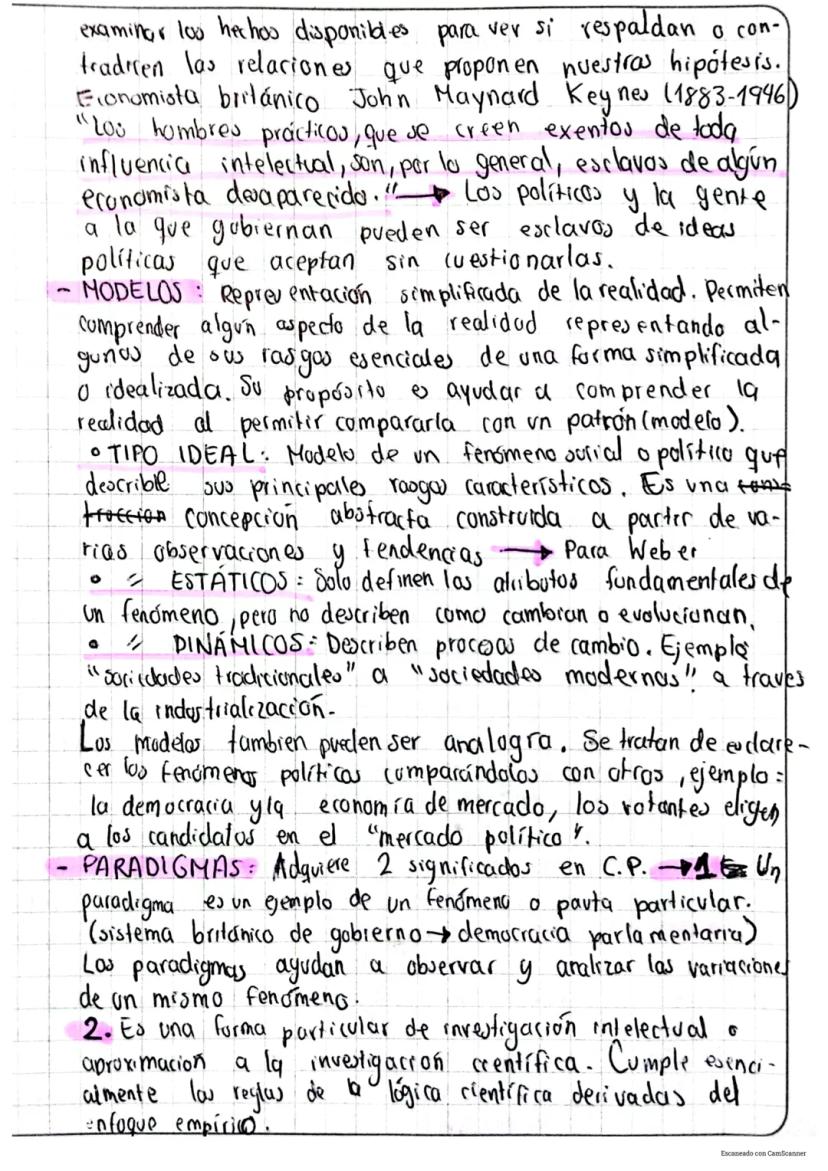 examinar los hechos disponibles para ver si respaldan o con-
tradicen las relaciones que proponen nuestras hipótesis.
Economista británico John Maynard Keynes (1883-1946)
"Los hombres prácticos, que se creen exentos de toda
influencia intelectual, son, por lo general, esclavos de algún
economista desaparecido." → Los políticos y la gente
a la que gobiernan pueden ser esclavos de ideas
políticas que aceptan sin cuestionarlas.
- MODELOS: Representación simplificada de la realidad. Permiten
comprender algún aspecto de la realidad representando al-
gunos de sus rasgos esenciales de una forma simplificada
o idealizada. Su propósito es ayudar a comprender la
realidad al permitir compararla con un patrón (modelo).
• TIPO IDEAL: Modelo de un fenómeno social o político que
describe sus principales rasgos característicos. Es una cons
truccion concepción abstracta construida a partir de va-
rias observaciones y tendencias → Para Weber
• " ESTÁTICOS: Solo definen los atributos fundamentales de
un fenómeno, pero no describen como cambian o evolucionan.
• " DINÁMICOS: Describen procesos de cambio. Ejemplo
"sociedades tradicionales" a "sociedades modernas" a traves
de la industrialización.
Los modelos tambien pueden ser analogra. Se tratan de esclare-
cer los fenómenos políticos comparándolos con otros, ejemplo:
la democracia y la economía de mercado, los votantes eligen
a los candidatos en el "mercado político".
- PARADIGMAS: Adquiere 2 significados en C.P. → 1 Un
paradigma es un ejemplo de un fenómeno o pauta particular.
(sistema británico de gobierno → democracia parlamentaria)
Los paradigmas ayudan a observar y analizar las variaciones
de un mismo fenómeno.
2. Es una forma particular de investigación intelectual o
aproximación a la investigacion científica. Cumple esenci-
almente las reglas de la lógica científica derivadas del
enfoque empírico.
Escaneado con CamScanner